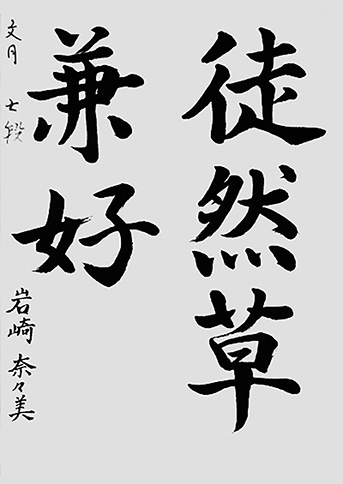 徒然草
兼好
文月 七段
岩崎 奈々美